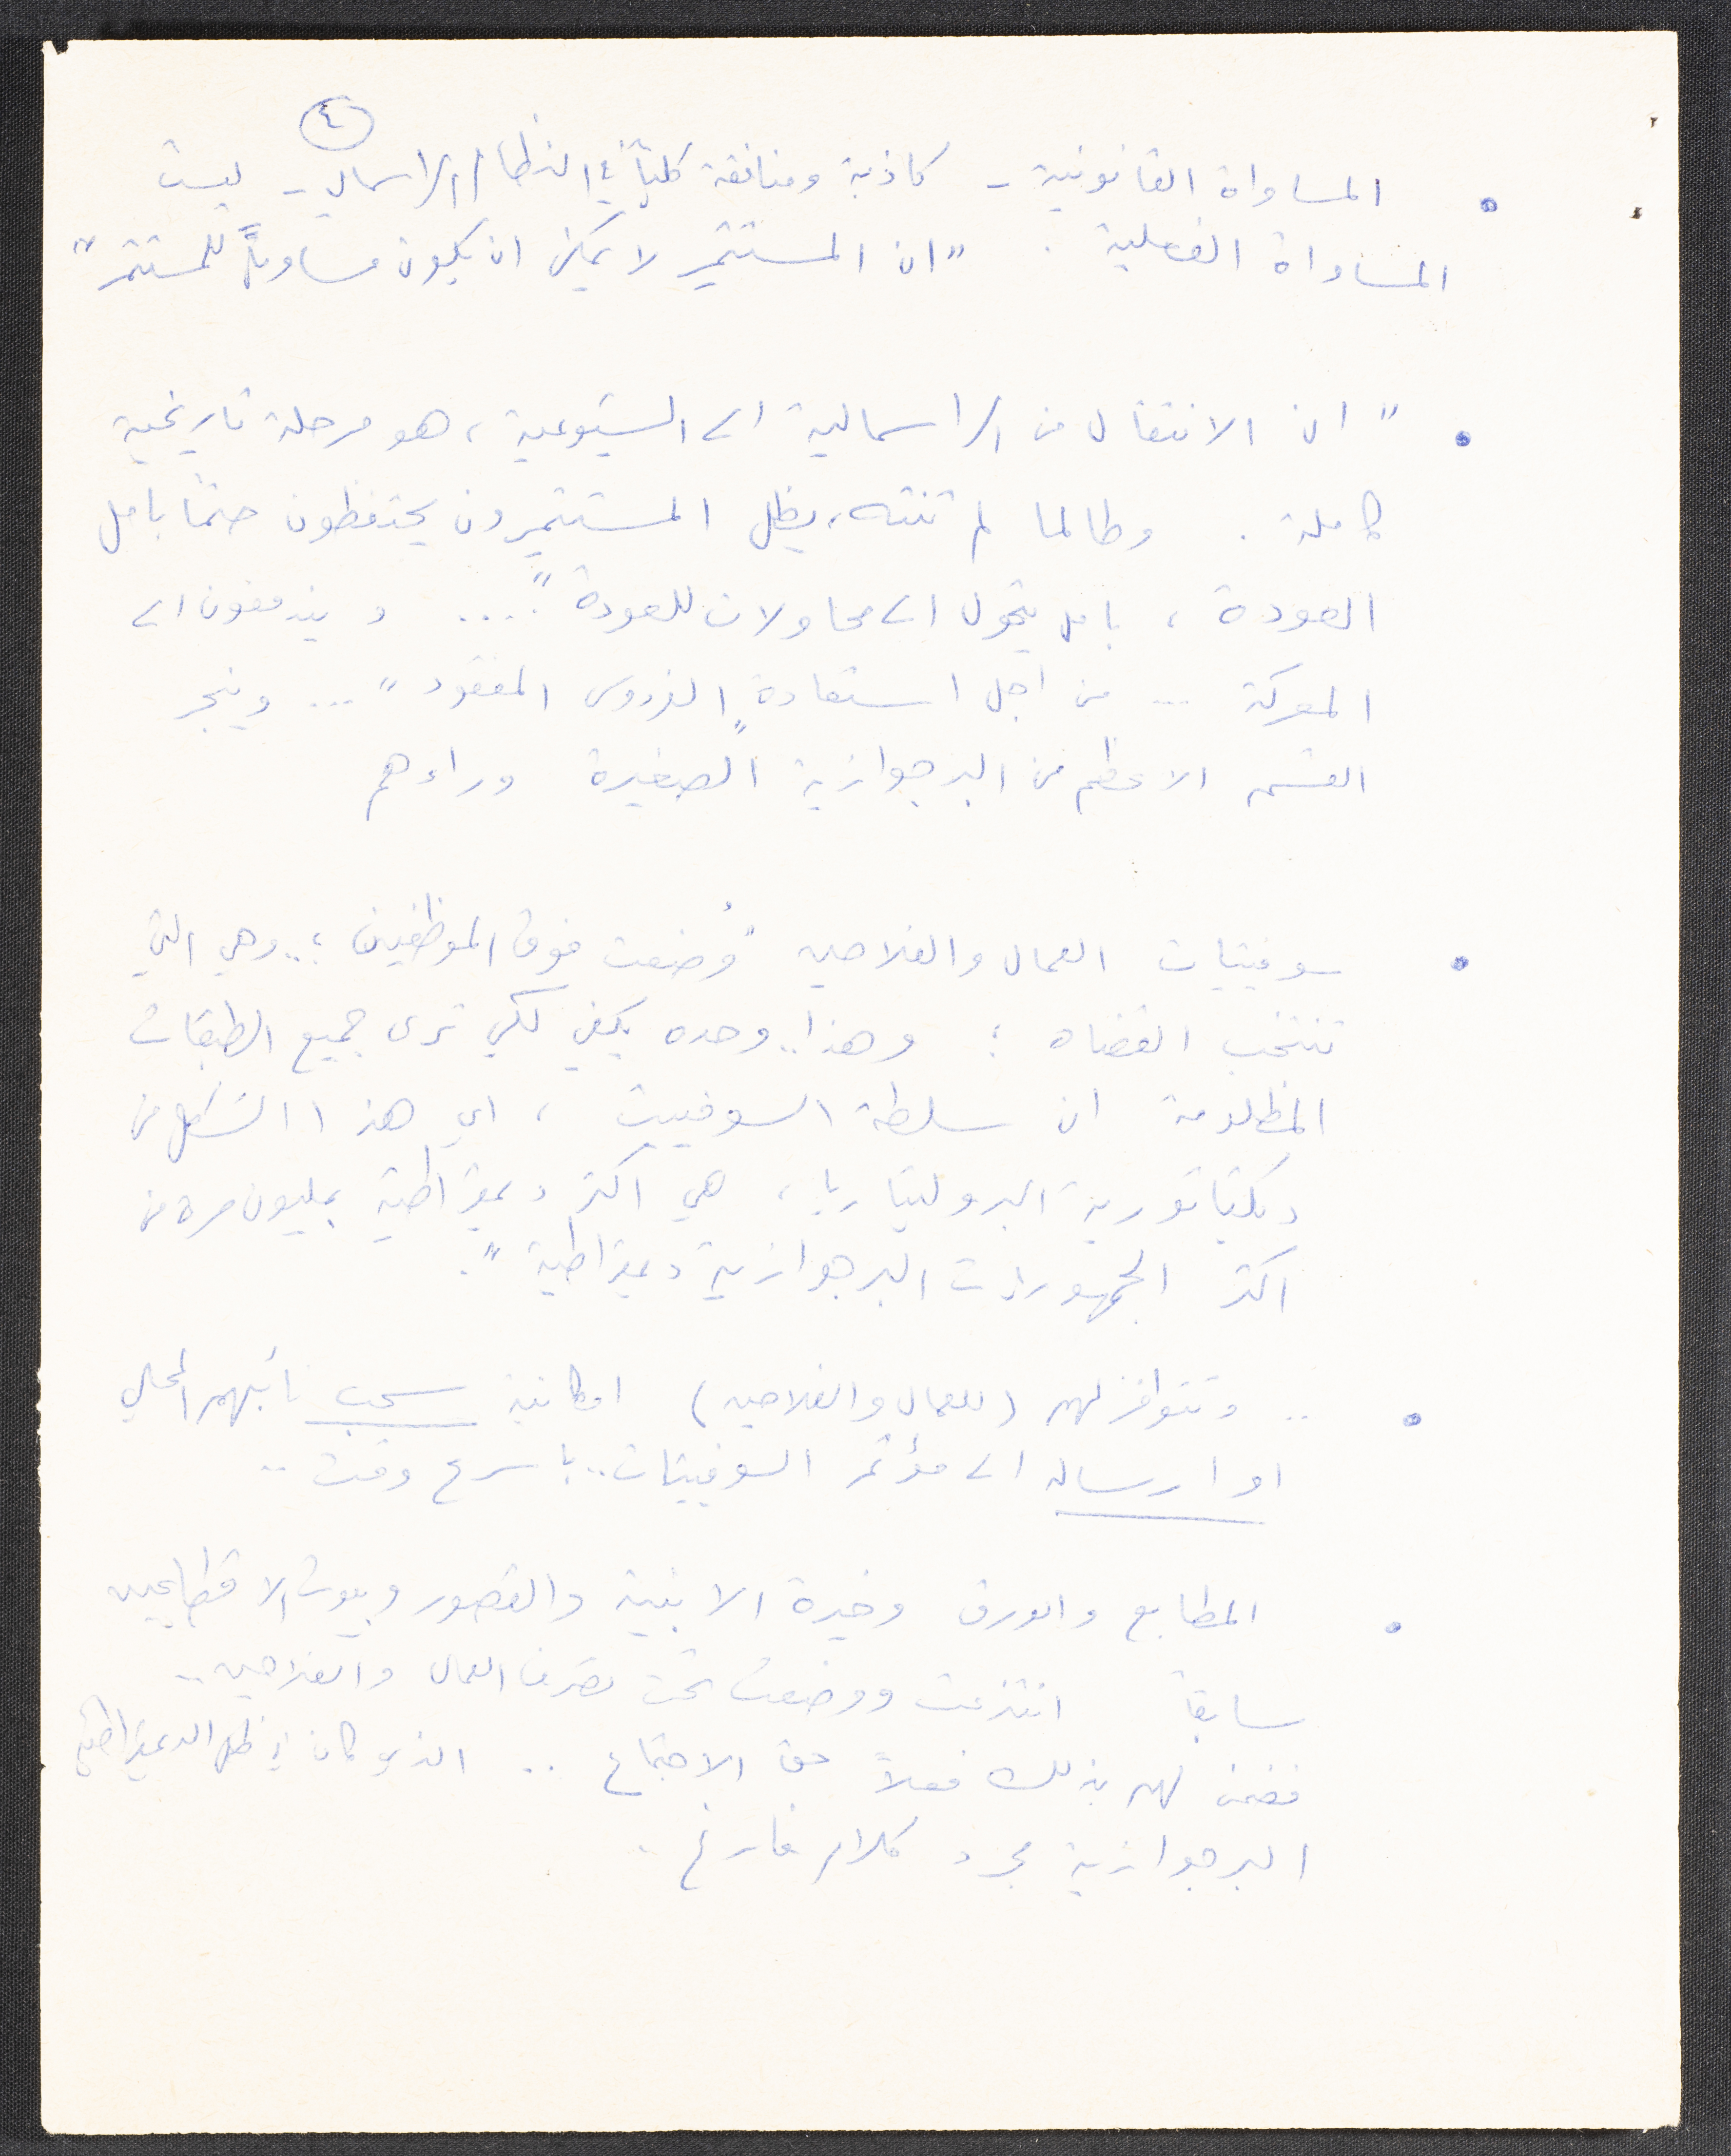 ٤
• المساواة القانونية - كاذبة ومنافقة كلياً في النظام الراسمالي - ليست
المساواة الفعلية . "ان المستثمِر لا يمكن ان يكون مساوياً للمستثمَر"
• " ان الانتقال من الراسمالية الى الشيوعية ، هو مرحلة تاريخية
كاملة . وطالما لم تنته ، يظل المستثمرون يحتفظون حتماً بامل
العودة ، بامل يتحول الى محاولات للعودة " .... و يندفعون الى
المعركة ... من اجل استعادة "الفردوس المفقود" ... وينجر
القسم الاعظم من البرجوازية الصغيرة وراءهم
• سوفيتيات العمال والفلاحين "وُضعت فوق الموظفين ؛.. وهي التي
تنتخب القضاه ؛ وهذا .. وحده يكفي لكي ترى جميع الطبقات
المظلومة ان سلطة السوفييت ، اي هذا الشكل من
دكتاتورية البروليتاريا ، هي اكثر ديمقراطية بمليون مرة من
اكثر الجمهوريات البرجوازية ديمقراطية ".
• .. وتتوافر لهم (للعمال والفلاحين) امكانية سحب نائبهم المحلي
او ارساله الى مؤتمر السوفيتات .. باسرع وقت ..
• المطابع والورق وخيرة الابنية والقصور وبيوت الاقطاعيين
سابقاً انتزعت ووضعت تحت تصرف العمال والفلاحين ..
فضمن لهم بذلك فعلاً حق الاجتماع .. الذي كان في ظل الديمقراطية
البرجوازية مجرد كلام فارغ .